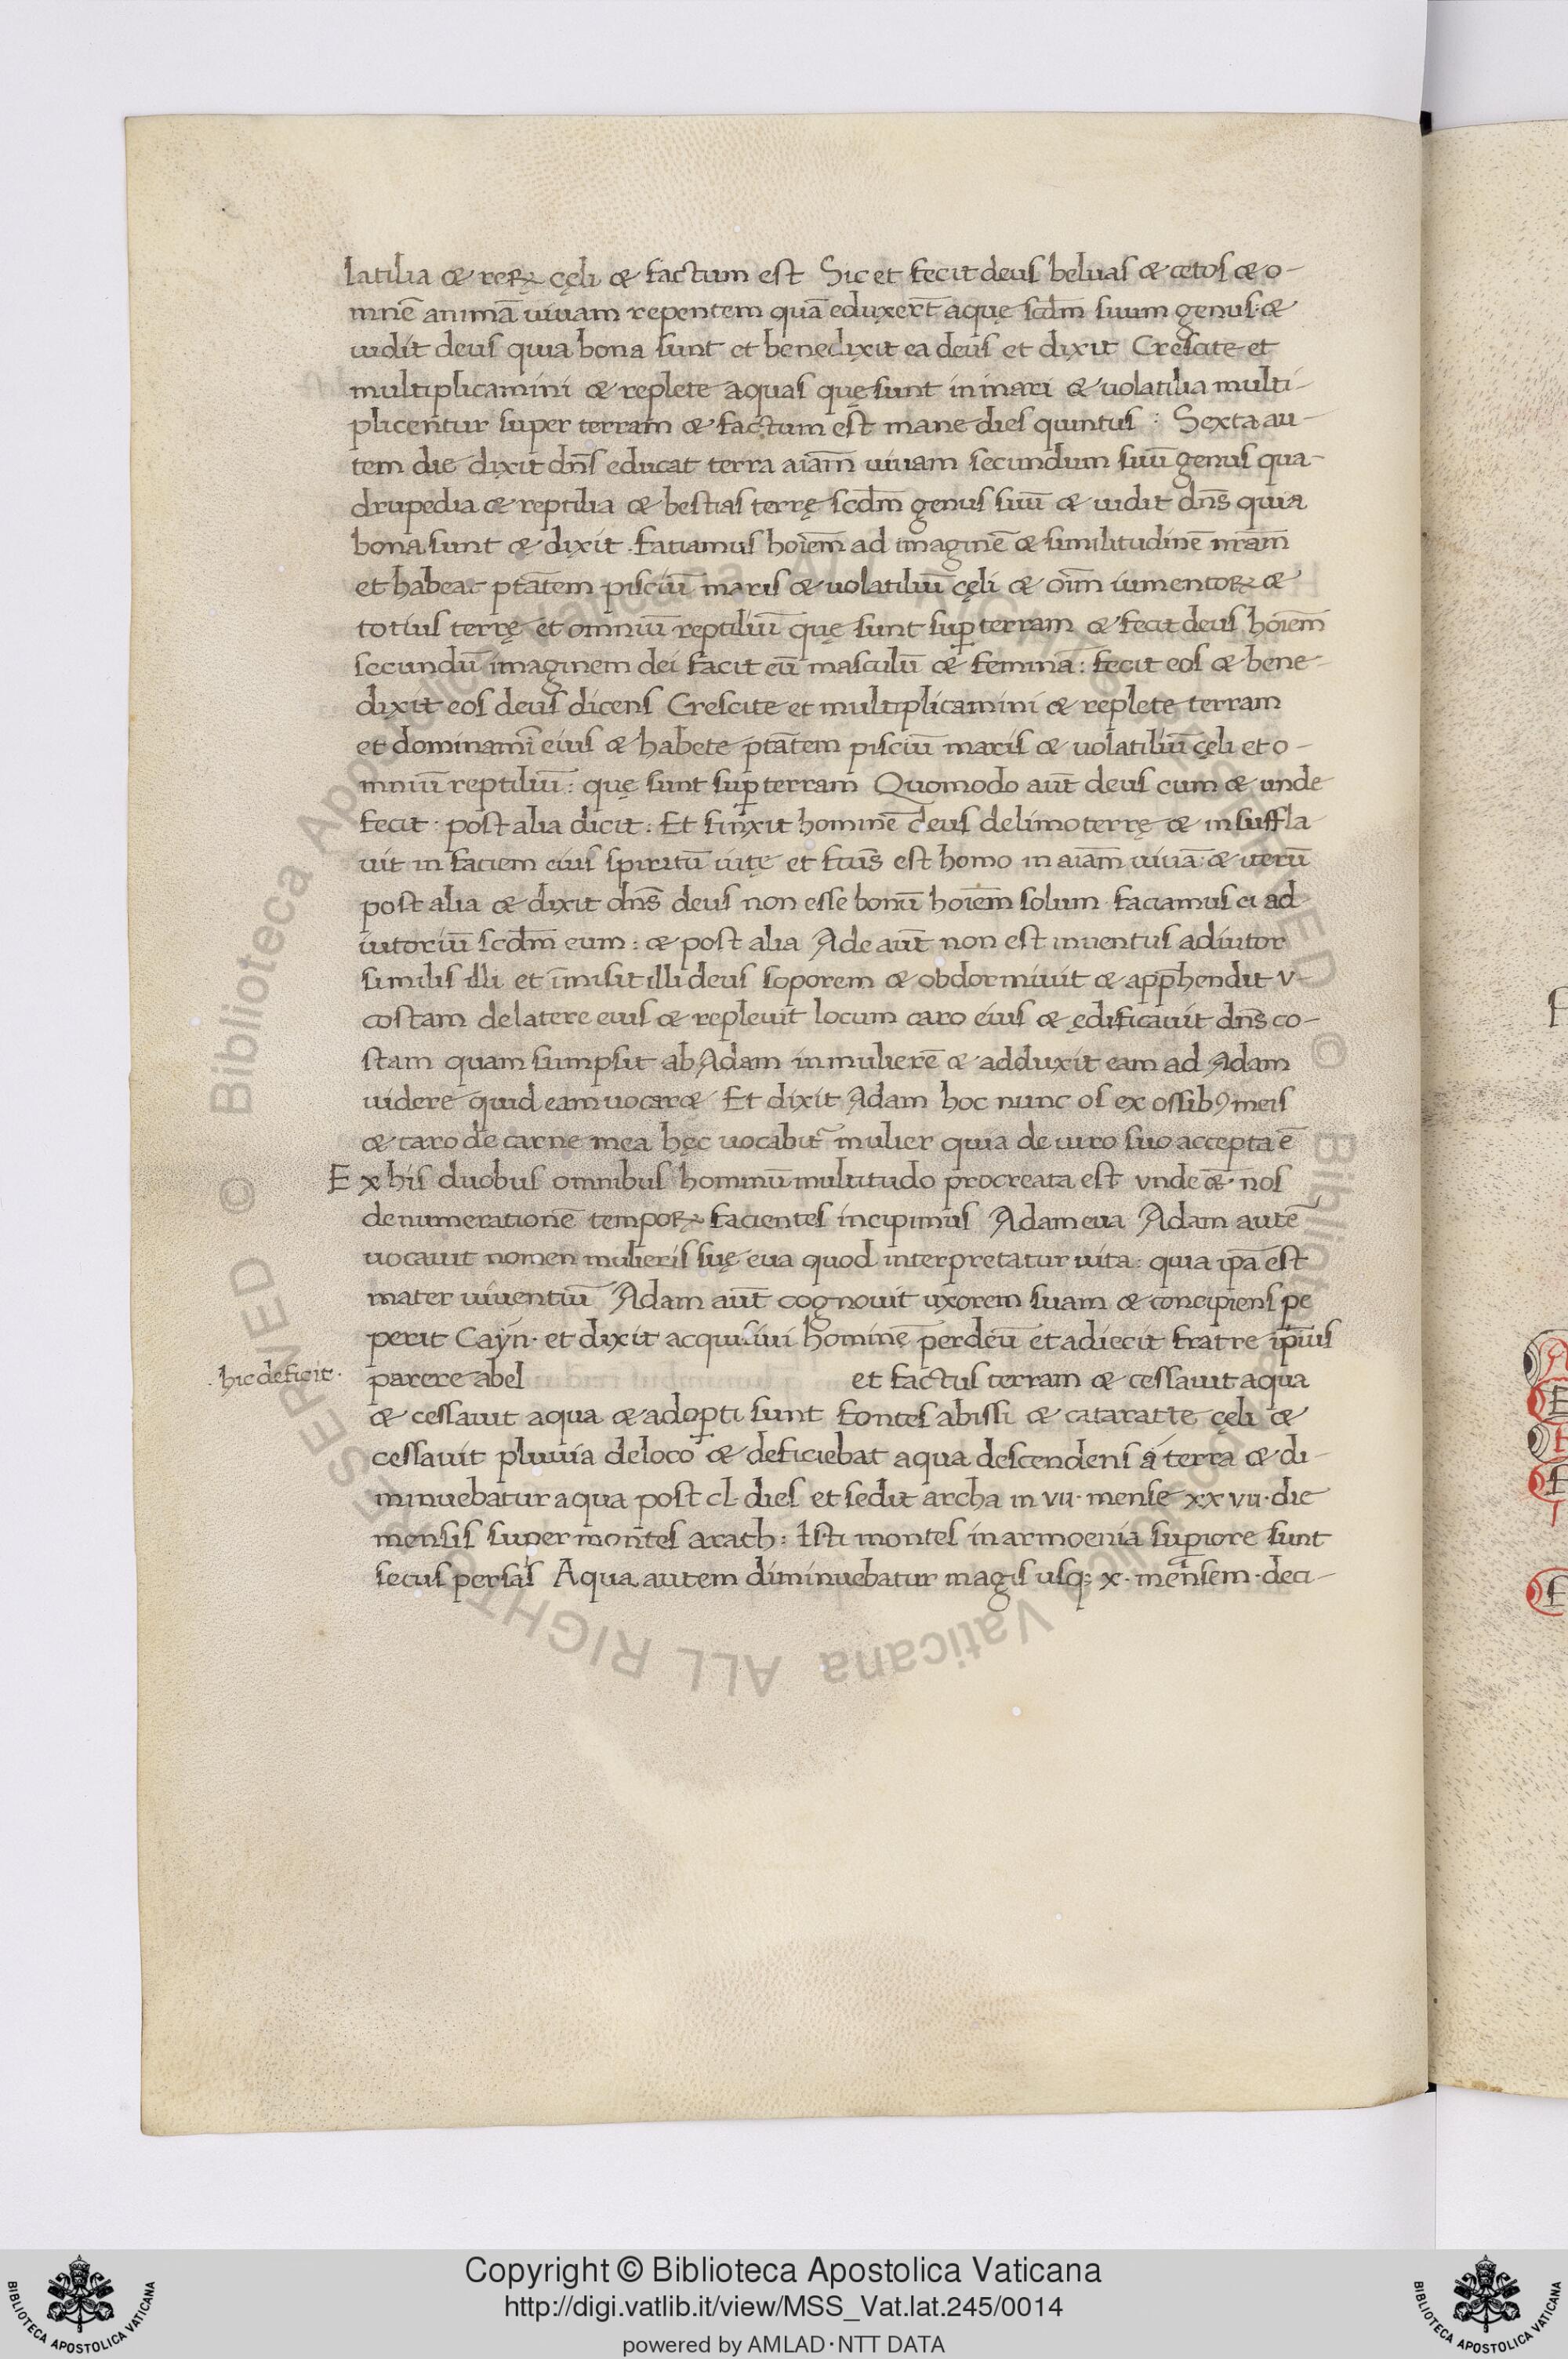 latilia & reꝝ cęli & factum est Sic et fecit deus beluas & cetos & o-
mnē animā uiuam repentem quā eduxerт̄ aquę scd̄m suum genus· &
uidit deus quia bona sunt et benedixit ea deus et dixit Crescite et
multiplicamini & replete aquas quę sunt in mari & uolatilia multi-
plicentur super terram & factum est mane dies quintus : Sexta au-
tem die dixit dn̄s educat terra aiām uiuam secundum suū genus qua-
drupedia & reptilia & bestias terrę scd̄m genus suū & uidit dn̄s quia
bona sunt & dixit · fatiamus hoīem ad imaginē & similitudinē nr̄am
et habeat ptātem pisciū maris & uolatiliū cęli & oīm iumentoꝝ &
totius terrę et omniū reptiliū quę sunt suꝑ terram & fecit deus hoīem
secundū imaginem dei facit eū masculū & feminā : fecit eos & bene-
dixit eos deus dicens Crescite et multiplicamini & replete terram
et dominamī eius & habete ptātem pisciū maris & uolatiliū cęli et o-
mniū reptiliū : quę sunt suꝑ terram Quomodo aūt deus cum & unde
fecit · post alia dicit : Et finxit hominē deus de limo terrę & insuffla
uit in faciem eius spiritū uitę et fc̄us est homo in aiām uiuā· & uerū
post alia & dixit dn̄s deus non esse bonū hoīem solum faciamus ei ad
iutoriū scd̄m eum : & post alia Ade aūt non est inuentus adiutor
similis illi et īmisit illi deus soporem & obdormiuit & app̄hendit v-
costam de latere eius & repleuit locum caro eius & ędificauit dn̄s co-
stam quam sumpsit ab Adam in mulierē & adduxit eam ad Adam
uidere quid eam uocar& Et dixit Adam hoc nunc os ex ossibꝰ meis
& caro de carne mea hęc uocabit᷑ mulier quia de uiro suo accepta ē
Ex his duobus omnibus hominū multitudo procreata est vnde & nos
denumerationē tempoꝝ facientes incipimus Adam eua Adam autē
uocauit nomen mulieris suę eua quod interpretatur uita : quia ip̄a est
mater uiuentiū Adam aūt cognouit uxorem suam & concipiens pe
perit Cayn· et dixit acquisiui hominē per deū et adiecit fratre ip̄ius
· hic deficit · parere abel et factus terram & cessauit aqua
& cessauit aqua & adoꝑti sunt fontes abissi & cataratte cęli &
cessauit pluuia de loco & deficiebat aqua descendens á terra & di-
minuebatur aqua post cl· dies et sedit archa in vii· mense xxvii· die
mensis super montes arath : Isti montes in armoenia suꝑiore sunt
secus persas Aqua autem diminuebatur magis usq; x· mensem · deci-
Copyright © Biblioteca Apostolica Vaticana
http://digi.vatlib.it/view/MSS_Vat.lat.245/0014
powered by AMLAD·NTT DATA